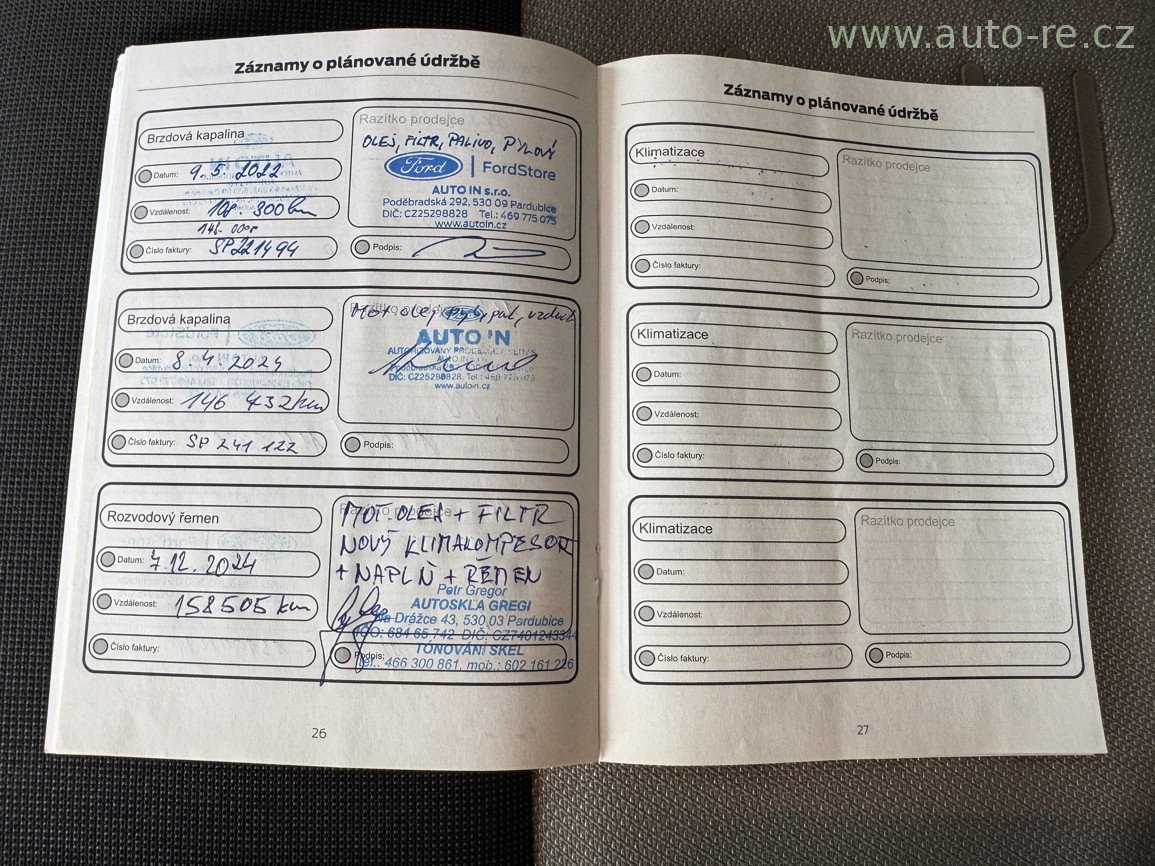 www.auto-re.cz
Záznamy o plánované údržbě
Brzdová kapalina
Datum: 9.5.2022
Vzdálenost: 108.300km
141.000
Číslo faktury: SP221494
Razítko prodejce
OLEJ, FILTR, PALIVO, PYLOVÝ
Ford FordStore
AUTO IN s.r.o.
Poděbradská 292, 530 09 Pardubice
DIČ: CZ25298828 Tel.: 469 775 075
www.autoin.cz
Podpis:
Brzdová kapalina
Datum: 8.4.2024
Vzdálenost: 146 432km
Číslo faktury: SP 241 122
Razítko prodejce
Mot olej, pyl, pal, vzduch
AUTO IN
DIČ: CZ25298828, Tel.: 469 775 075
www.autoin.cz
Podpis:
Rozvodový řemen
Datum: 7.12.2024
Vzdálenost: 158505 km
Číslo faktury:
Razítko prodejce
MOT. OLEJ + FILTR
NOVÝ KLIMAKOMPESOR
+ NAPLŇ + ŘEMEN
Petr Gregor
AUTOSKLA GREGI
Na Drážce 43, 530 03 Pardubice
IČO: 684 65 742 DIČ: CZ7401243344
TÓNOVÁNÍ SKEL
Podpis:
Tel.: 466 300 861, mob.: 602 161 226
26
Záznamy o plánované údržbě
Klimatizace
Datum:
Vzdálenost:
Číslo faktury:
Razítko prodejce
Podpis:
Klimatizace
Datum:
Vzdálenost:
Číslo faktury:
Razítko prodejce
Podpis:
Klimatizace
Datum:
Vzdálenost:
Číslo faktury:
Razítko prodejce
Podpis:
27